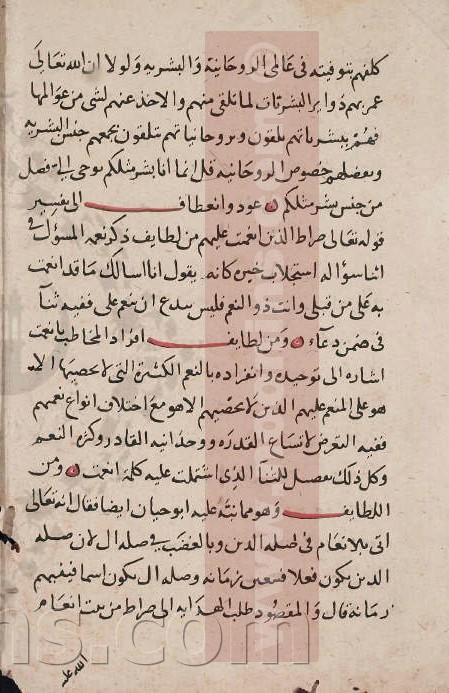 كلفهم بتوفيته في عالمى الروحانية والبشريه ولولا ان الله تعالى
عمر بهم دواير البشريات لما تلقى منهم والاخذ عنهم لشى من عوالمها
فهم ببشرياتهم يلقون وبروحانياتهم يتلقون يجمعهم جنس البشريه
ويفصلهم خصوص الروحانيه قل انما انا بشر مثلكم يوحى الى فصل
من جنس بشر مثلكم عود وانعطاف الى تفسير
قوله تعالى صراط الذين انعمت عليهم من لطايف ذكر نعمة المسؤل في
اثنا سؤاله استجلاب خيره كانه يقول انا اسالك ما قد انعمت
به على من قبلى وانت ذو النعم فليس ببدع ان تنعم على ففيه ثنآ
فى ضمن دعآء ومن لطايف افراد المخاطب بانعمت
اشاره الى توحيده وانفراده بالنعم الكثيرة التى لا يحصيها الا
هو على المنعم عليهم الذين لا يحصيهم الا هو مع اختلاف انواع نعمهم
ففيه التعرض لاتساع القدره ووحدانيه القادر وكثره النعم
وكل ذلك تفصيل للثنآ الذى اشتملت عليه كلمة انعمت ومن
اللطايف وهو مما نبه عليه ابو حيان ايضا فقال انه تعالى
اتى بالانعام فى صله الذين وبالغضب فى صله ال لان صله
الذين يكون فعلا فيتعين زمانه وصله ال يكون اسما فينبهم
زمانه قال والمقصود طلب الهدايه الى صراط من ثبت انعام
الله عليه
www. .com
ns.com